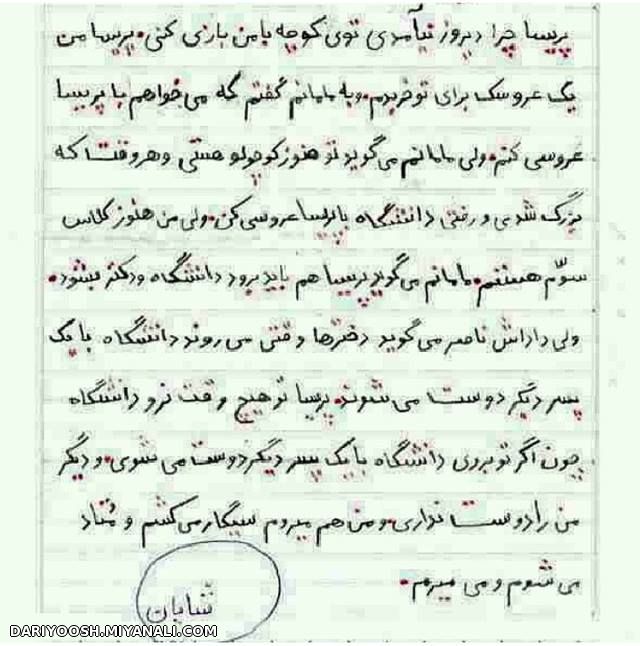 پریسا چرا دیروز نیآمدی توی کوچه با من بازی کنی. پریسا من
یک عروسک برای تو خریدم. و به مامانم گفتم که می خواهم با پریسا
عروسی کنم. ولی مامانم می گوید تو هنوز کوچولو هستی و هر وقت که
بزرگ شدی و رفتی دانشگاه با پریسا عروسی کن. ولی من هنوز کلاس
سوّم هستم. مامانم می گوید پریسا هم باید برود دانشگاه و دکتر بشود.
ولی داداش ناصر می گوید دخترها وقتی می روند دانشگاه با یک
پسر دیگر دوست می شوند. پریسا تو هیچ وقت نرو دانشگاه
چون اگر تو بروی دانشگاه با یک پسر دیگر دوست می شوی. و دیگر
من را دوست نداری. و من هم میروم سیگار می کشم و مُتاد
می شوم و می میرم.
شایان
DARIYOOSH.MIYANALI.COM